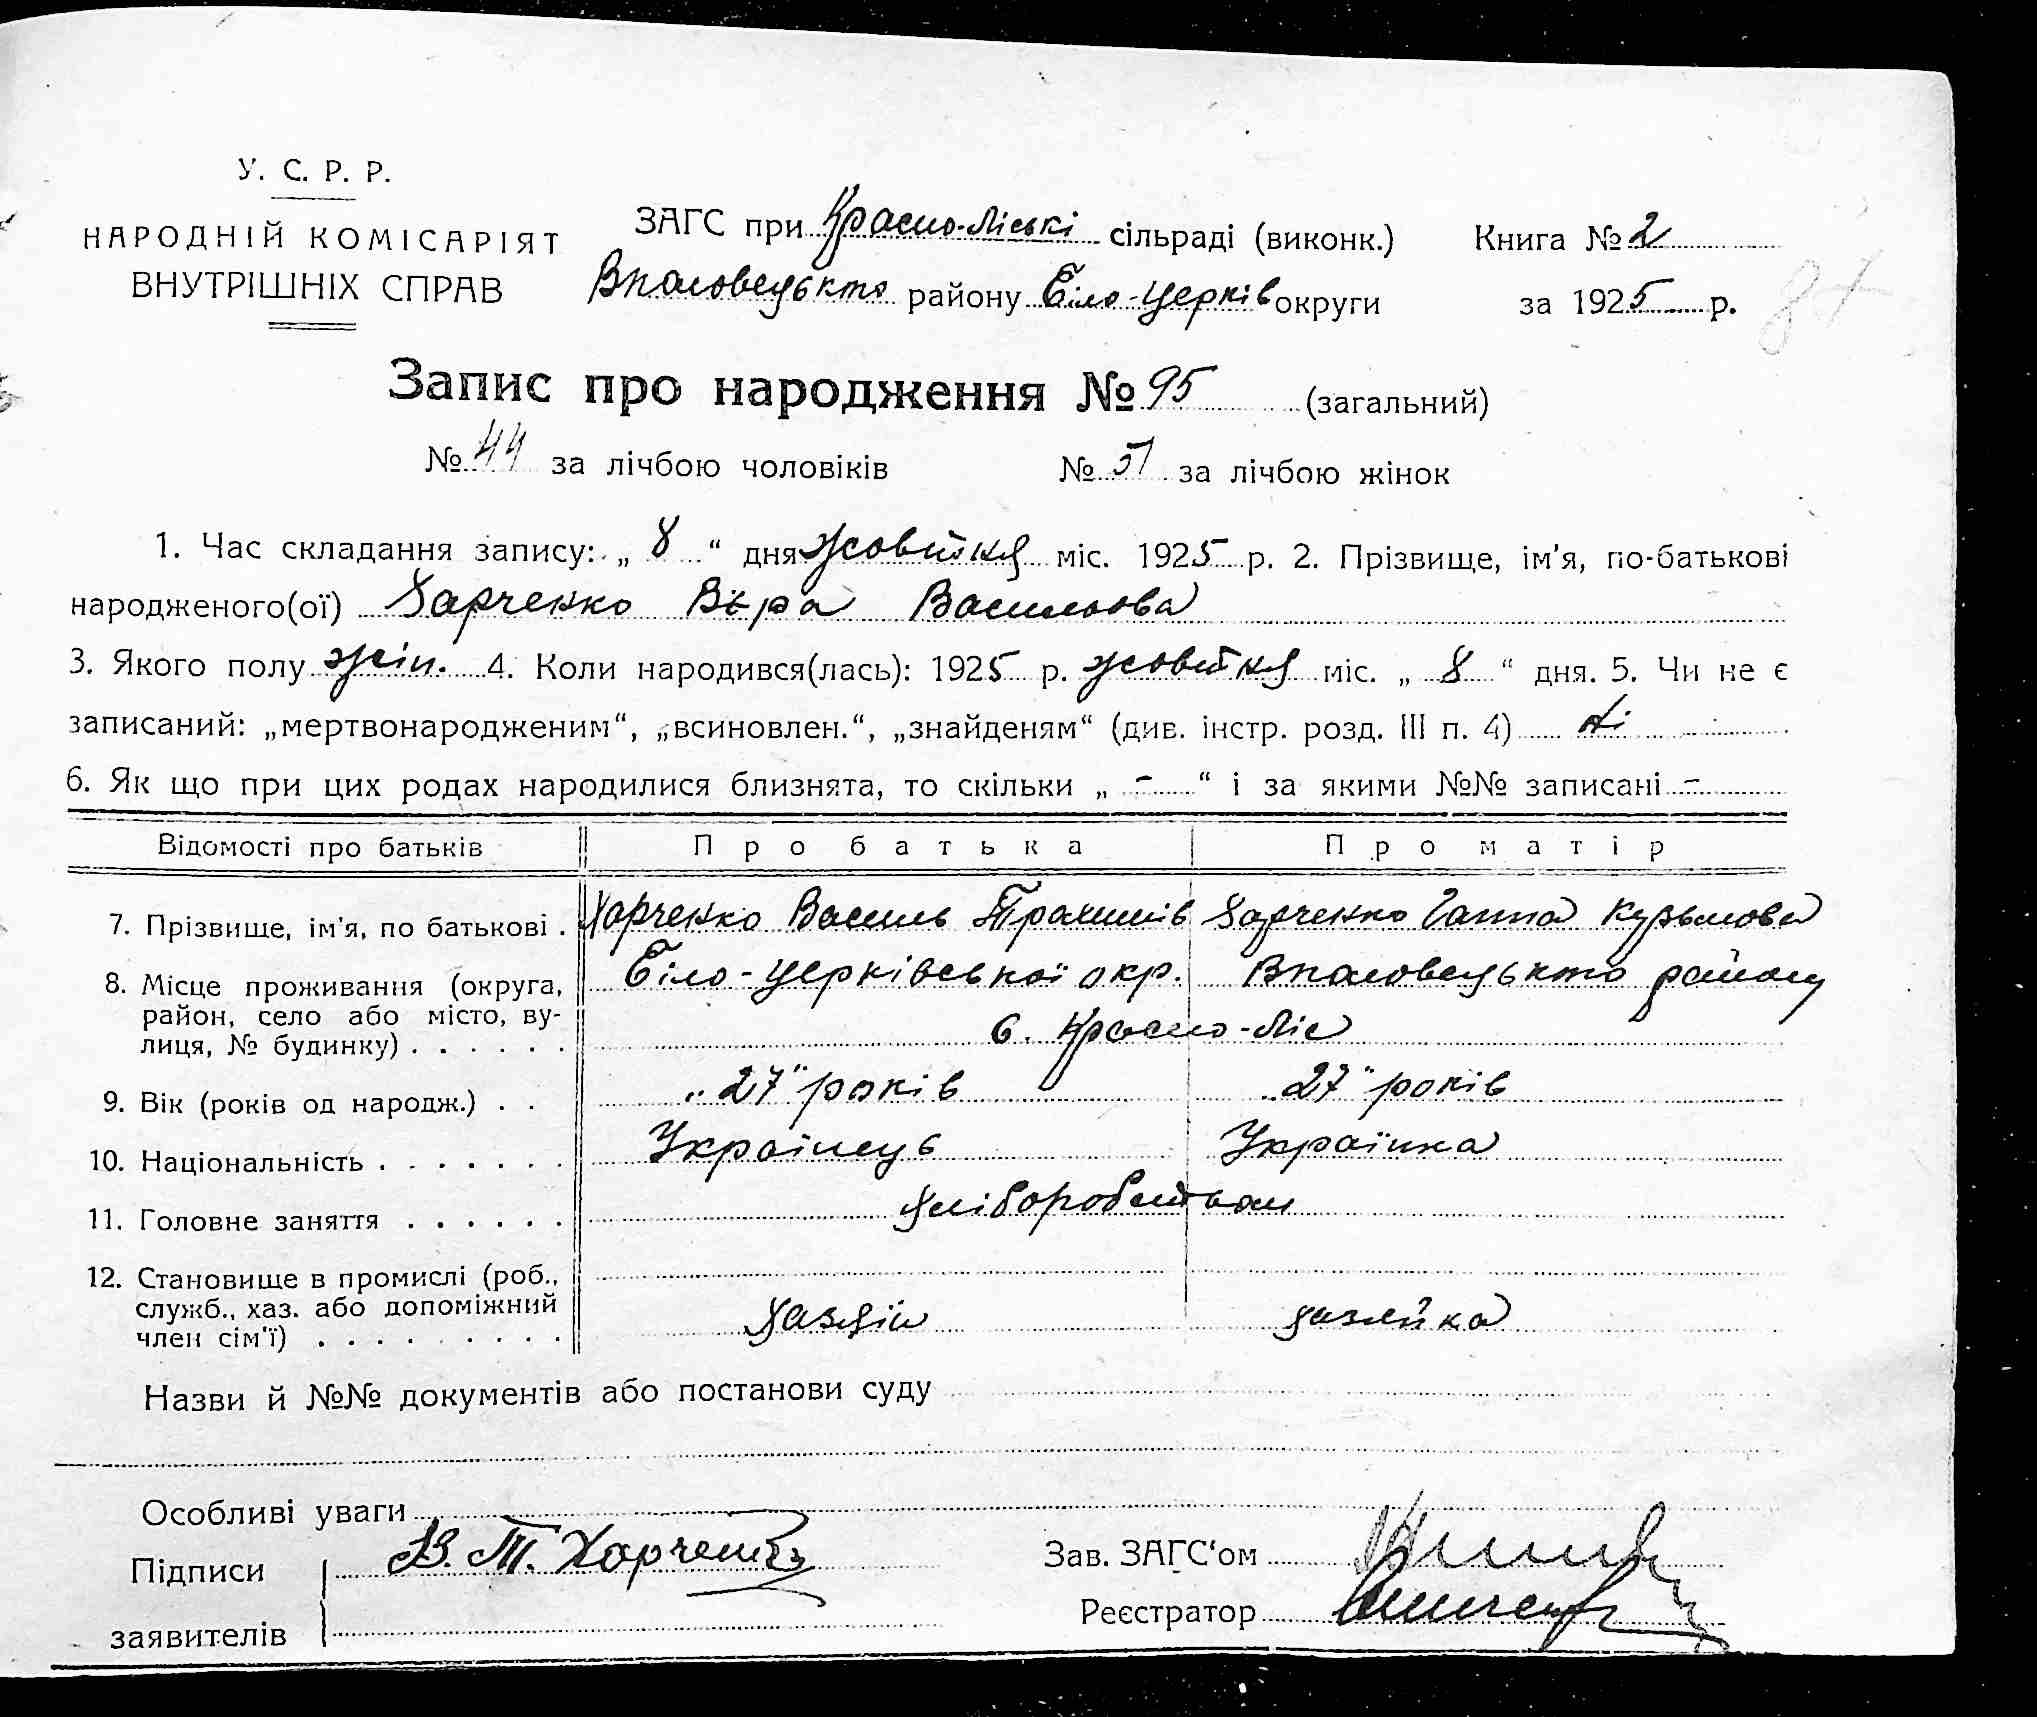 У. С. Р. Р.
НАРОДНІЙ КОМІСАРІЯТ
ВНУТРІШНІХ СПРАВ
ЗАГС при Красно-Ліські сільраді (виконк.) Книга № 2
району Біло-Церків округи за 1925 р.
Запис про народження № 95 (загальний)
№ 44 за лічбою чоловіків № 51 за лічбою жінок
1. Час складання запису: „ 8 “ дня жовтня міс. 1925 р. 2. Прізвище, ім'я, по-батькові
народженого(ої) Харченко Віра Васильова
3. Якого полу жін. 4. Коли народився(лась): 1925 р. жовтня міс. „ 8 “ дня. 5. Чи не є
записаний: „мертвонародженим“, „всиновлен.“, „знайденям“ (див. інстр. розд. III п. 4) Ні
6. Як що при цих родах народилися близнята, то скільки „ - “ і за якими №№ записані -
Відомості про батьків Про батька Про матір
7. Прізвище, ім'я, по батькові . Харченко Василь Харченко Ганна Кузьмова
8. Місце проживання (округа, Біло-Церківської окр. району
район, село або місто, ву- с. Красно-Ліс
лиця, № будинку) . . . . . .
9. Вік (років од народж.) . . „27“ років „27“ років
10. Національність . . . . . . . Українець Українка
11. Головне заняття . . . . . . Хліборобством
12. Становище в промислі (роб.,
служб., хаз. або допоміжний хазяїн хазяйка
член сім'ї) . . . . . . . . .
Назви й №№ документів або постанови суду
Особливі уваги
Підписи В. Т. Харченко Зав. ЗАГС‘ом
заявителів Реєстратор